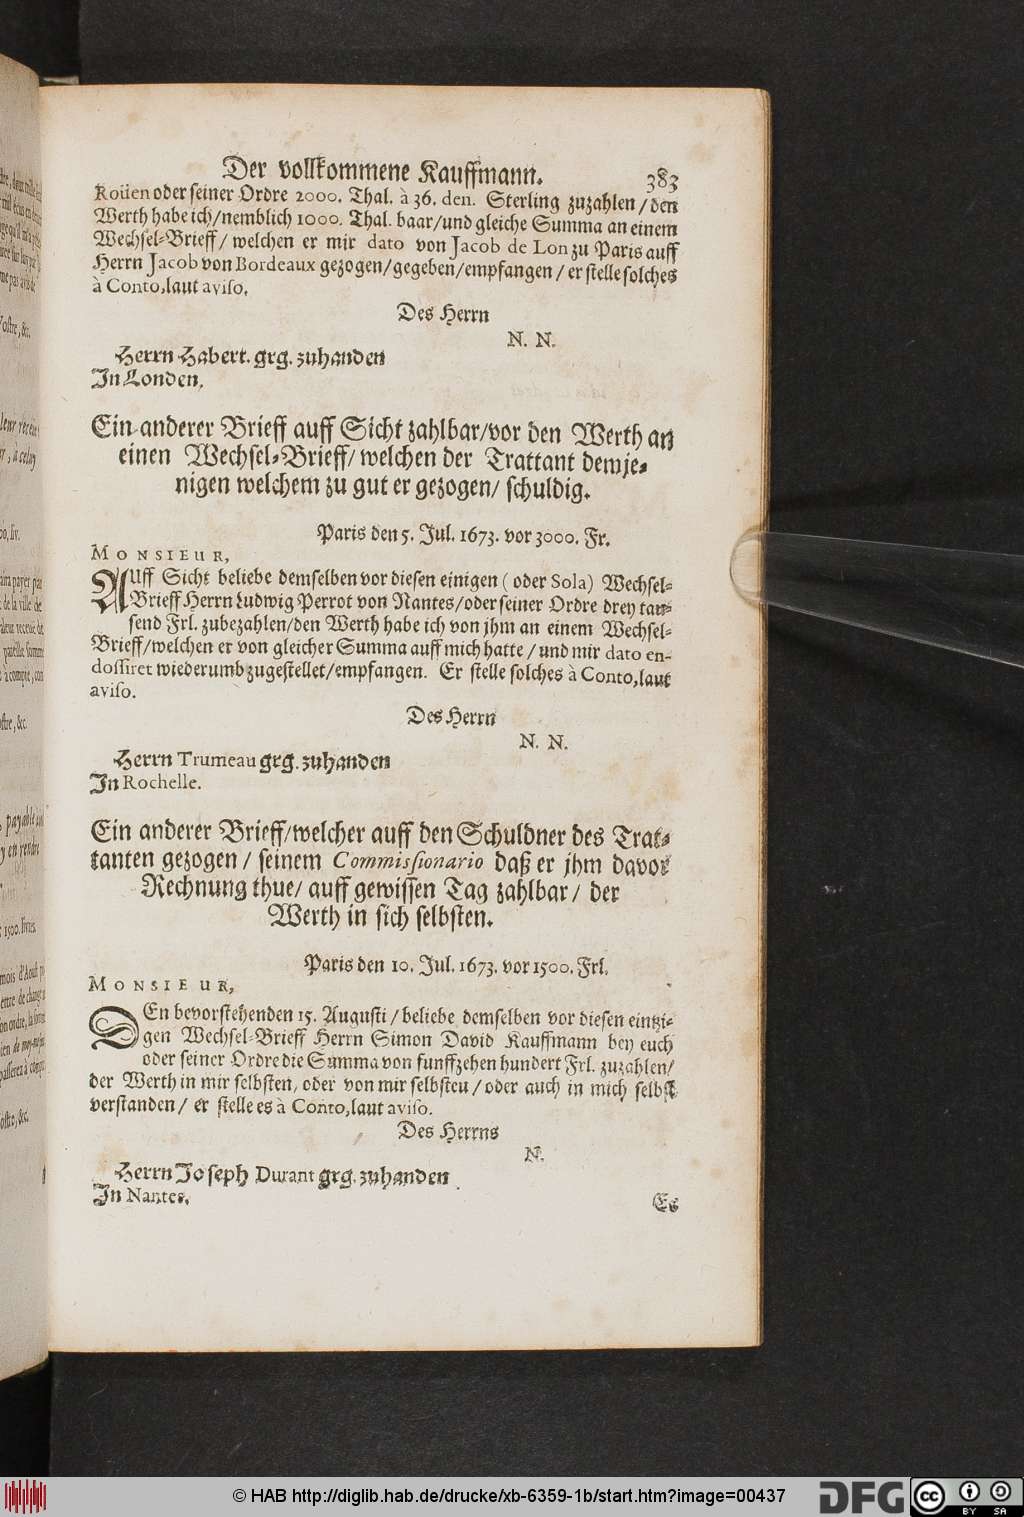 Der vollkommene Kauffmann. 383
Roüen oder seiner Ordre 2000. Thal. à 36. den. Sterling zuzahlen / den
Werth habe ich / nemblich 1000. Thal. baar / und gleiche Summa an einem
Wechsel-Brieff / welchen er mir dato von Jacob de Lon zu Paris auff
Herrn Jacob von Bordeaux gezogen / gegeben / empfangen / er stelle solches
à Conto, laut aviso.
Des Herrn
N. N.
Herrn Habert. grg. zuhanden
In Londen.
Ein anderer Brieff auff Sicht zahlbar / vor den Werth an
einen Wechsel-Brieff / welchen der Trattant demje-
nigen welchem zu gut er gezogen / schuldig.
Paris den 5. Jul. 1673. vor 3000. Fr.
MONSIEUR,
AUff Sicht beliebe demselben vor diesen einigen ( oder Sola ) Wechsel-
Brieff Herrn Ludwig Perrot von Nantes / oder seiner Ordre drey tau-
send Frl. zubezahlen / den Werth habe ich von jhm an einem Wechsel-
Brieff / welchen er von gleicher Summa auff mich hatte / und mir dato en-
dossiret wiederumb zugestellet / empfangen. Er stelle solches à Conto, laut
aviso.
Des Herrn
N. N.
Herrn Trumeau grg. zuhanden
In Rochelle.
Ein anderer Brieff / welcher auff den Schuldner des Trat-
tanten gezogen / seinem Commissionario daß er jhm davor
Rechnung thue / auff gewissen Tag zahlbar / der
Werth in sich selbsten.
Paris den 10. Jul. 1673. vor 1500. Frl.
MONSIEUR,
DEn bevorstehenden 15. Augusti / beliebe demselben vor diesen eintzi-
gen Wechsel-Brieff Herrn Simon David Kauffmann bey euch
oder seiner Ordre die Summa von funffzehen hundert Frl. zuzahlen /
der Werth in mir selbsten, oder von mir selbsten / oder auch in mich selbst
verstanden / er stelle es à Conto, laut aviso.
Des Herrns
N.
Herrn Joseph Durant grg. zuhanden
In Nantes.
Es
© HAB http://diglib.hab.de/drucke/xb-6359-1b/start.htm?image=00437
DFG
cc BY SA